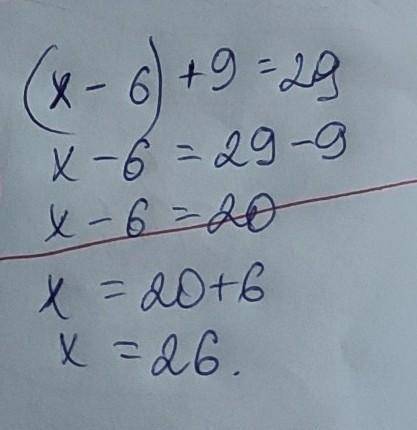 (x - 6) + 9 = 29
x - 6 = 29 - 9
x - 6 = 20
x = 20 + 6
x = 26.